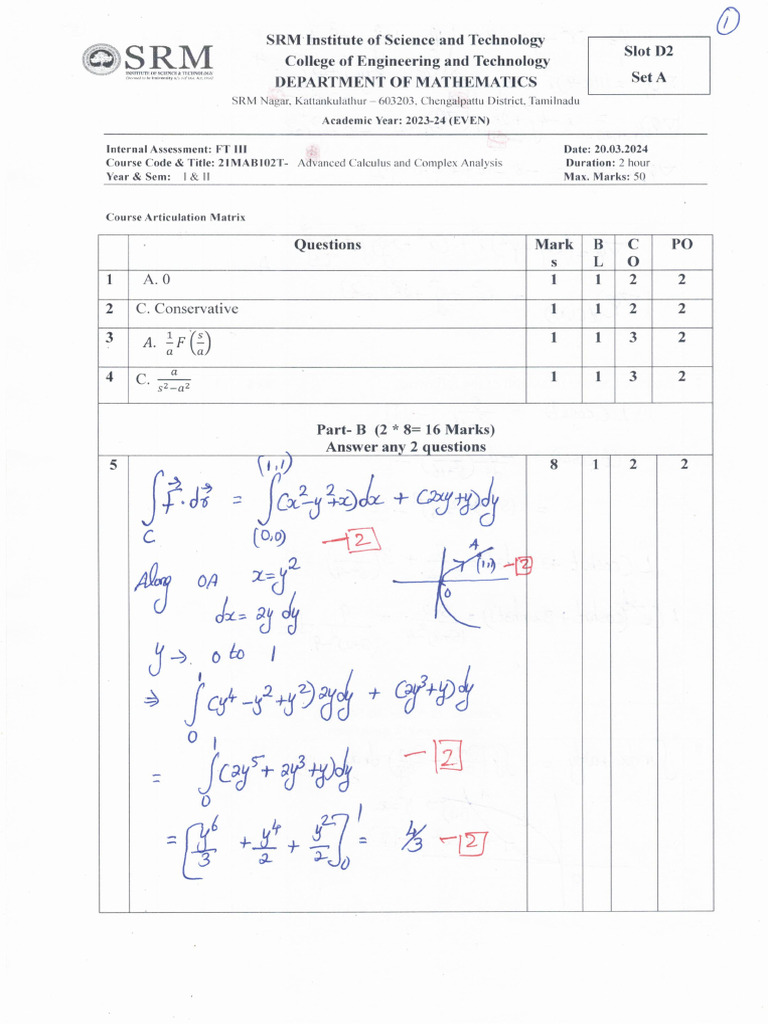 1
SRM
INSTITUTE OF SCIENCE & TECHNOLOGY
SRM Institute of Science and Technology
College of Engineering and Technology
DEPARTMENT OF MATHEMATICS
SRM Nagar, Kattankulathur – 603203, Chengalpattu District, Tamilnadu
Academic Year: 2023-24 (EVEN)
Slot D2
Set A
Internal Assessment: FT III
Date: 20.03.2024
Course Code & Title: 21MAB102T- Advanced Calculus and Complex Analysis
Duration: 2 hour
Year & Sem: I & II
Max. Marks: 50
Course Articulation Matrix
Questions Marks BL CO PO
1 A. 0 1 1 2 2
2 C. Conservative 1 1 2 2
3 A. 1/a F(s/a) 1 1 3 2
4 C. a/(s²−a²) 1 1 3 2
Part- B (2 * 8= 16 Marks)
Answer any 2 questions
5 8 1 2 2
∫_C F⃗·dr⃗ = ∫_(0,0)^(1,1) (x²−y²+x)dx + (2xy+y)dy
—2
Along OA x=y²
dx = 2y dy
A
(1,1)
O
—2
y → 0 to 1
⇒ ∫_0^1 (y⁴−y²+y²)2ydy + (2y³+y)dy
= ∫_0^1 (2y⁵+2y³+y)dy
—2
= [y⁶/3 + y⁴/2 + y²/2]_0^1 = 4/3 —2